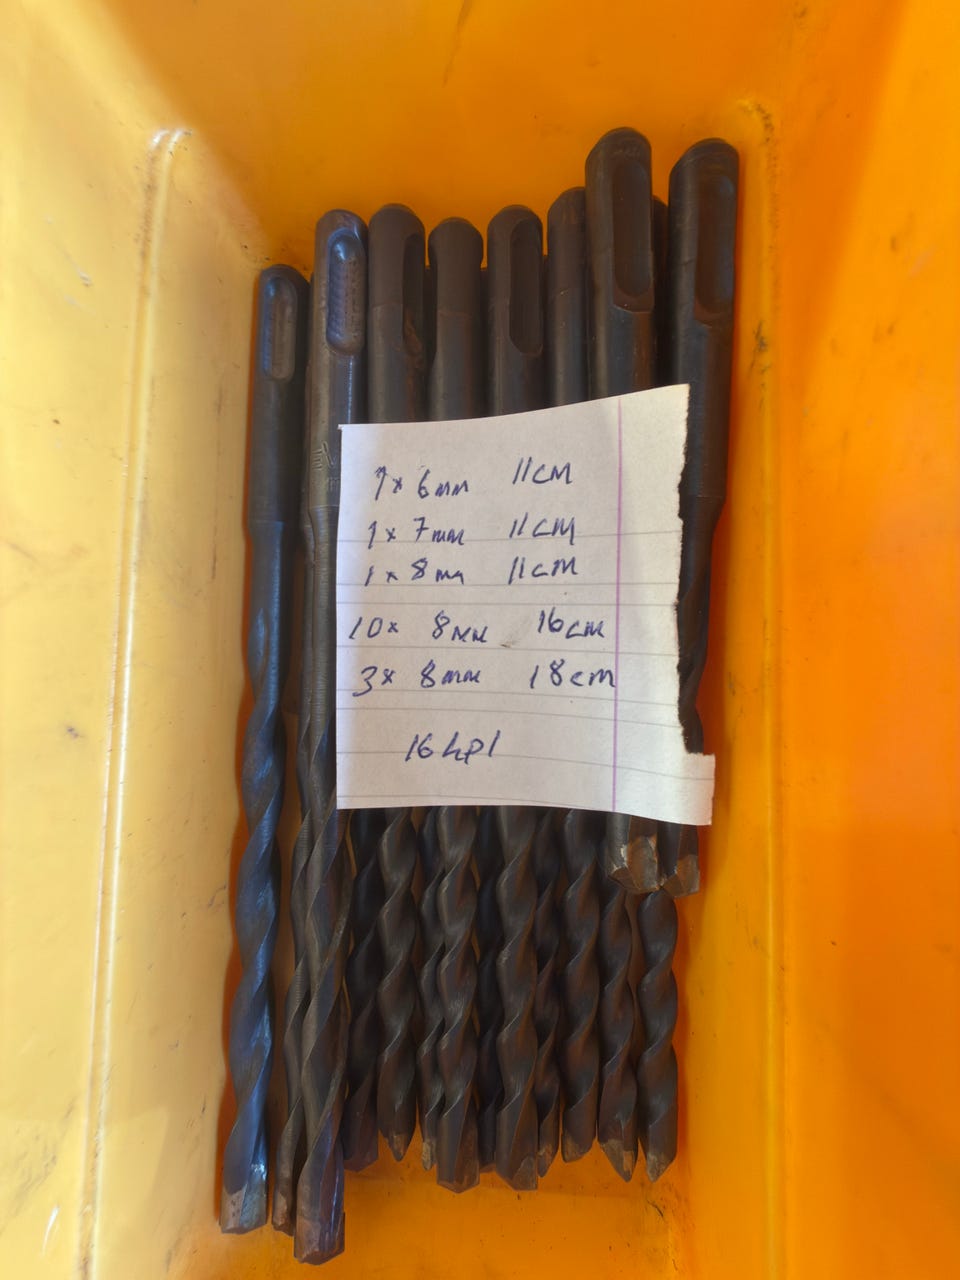 1x 6mm 11cm
1x 7mm 11cm
1x 8mm 11cm
10x 8mm 16cm
3x 8mm 18cm
16 kpl